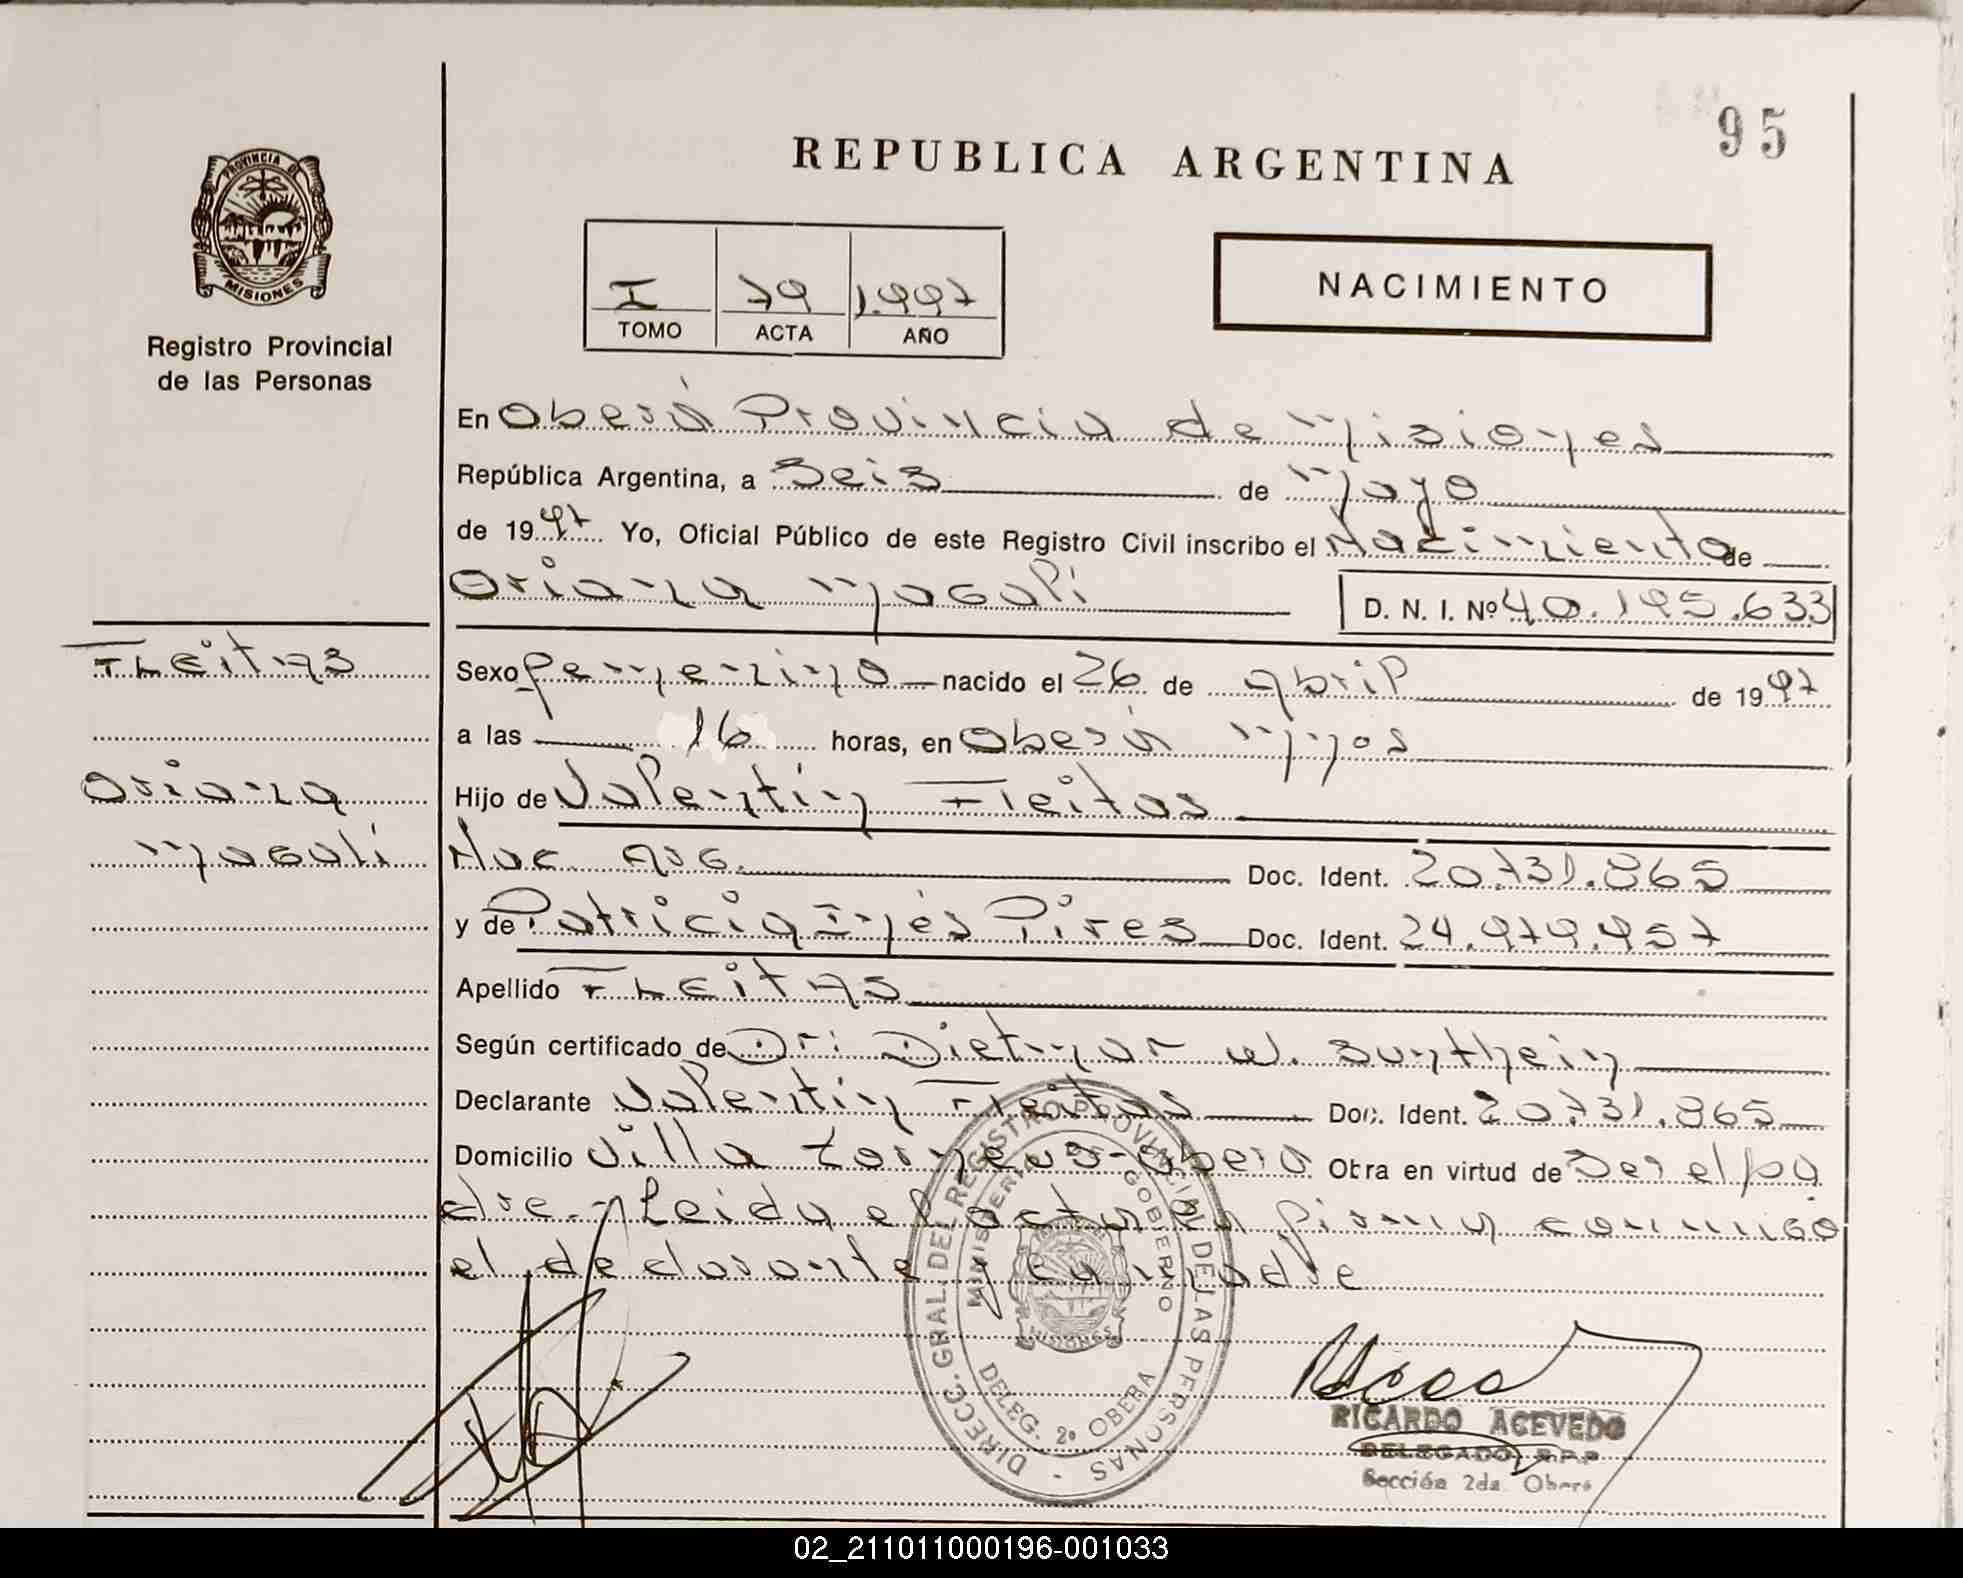 95
REPUBLICA ARGENTINA
PROVINCIA DE
MISIONES
Registro Provincial
de las Personas
I 79 1.997
TOMO ACTA AÑO
NACIMIENTO
En Oberá Provincia de Misiones
República Argentina, a Seis de Mayo
de 1997 Yo, Oficial Público de este Registro Civil inscribo el Nacimiento de
Oriana Magali D. N. I. Nº 40.195.633
FLEITAS
Oriana
Magali
Sexo femenino nacido el 26 de abril de 1997
a las 16 horas, en Oberá Mnes
Hijo de Valentin Fleitas
Nac. Arg. Doc. Ident. 20.731.865
y de Patricia Inés Pires Doc. Ident. 24.979.957
Apellido FLEITAS
Según certificado de Dr: Dietmar W.
Declarante Valentin Fleitas Doc. Ident. 20.731.865
Domicilio Villa Oberá Obra en virtud de Ser el pa
dre.- Leida el acta la firman conmigo
el declarante y la madre
DIRECC. GRAL. DEL REGISTRO PROVINCIAL DE LAS PERSONAS
MINISTERIO GOBIERNO
MISIONES
DELEG. 2ª OBERA
RICARDO ACEVEDO
DELEGADO R.P.P
Sección 2da Oberá
02_211011000196-001033